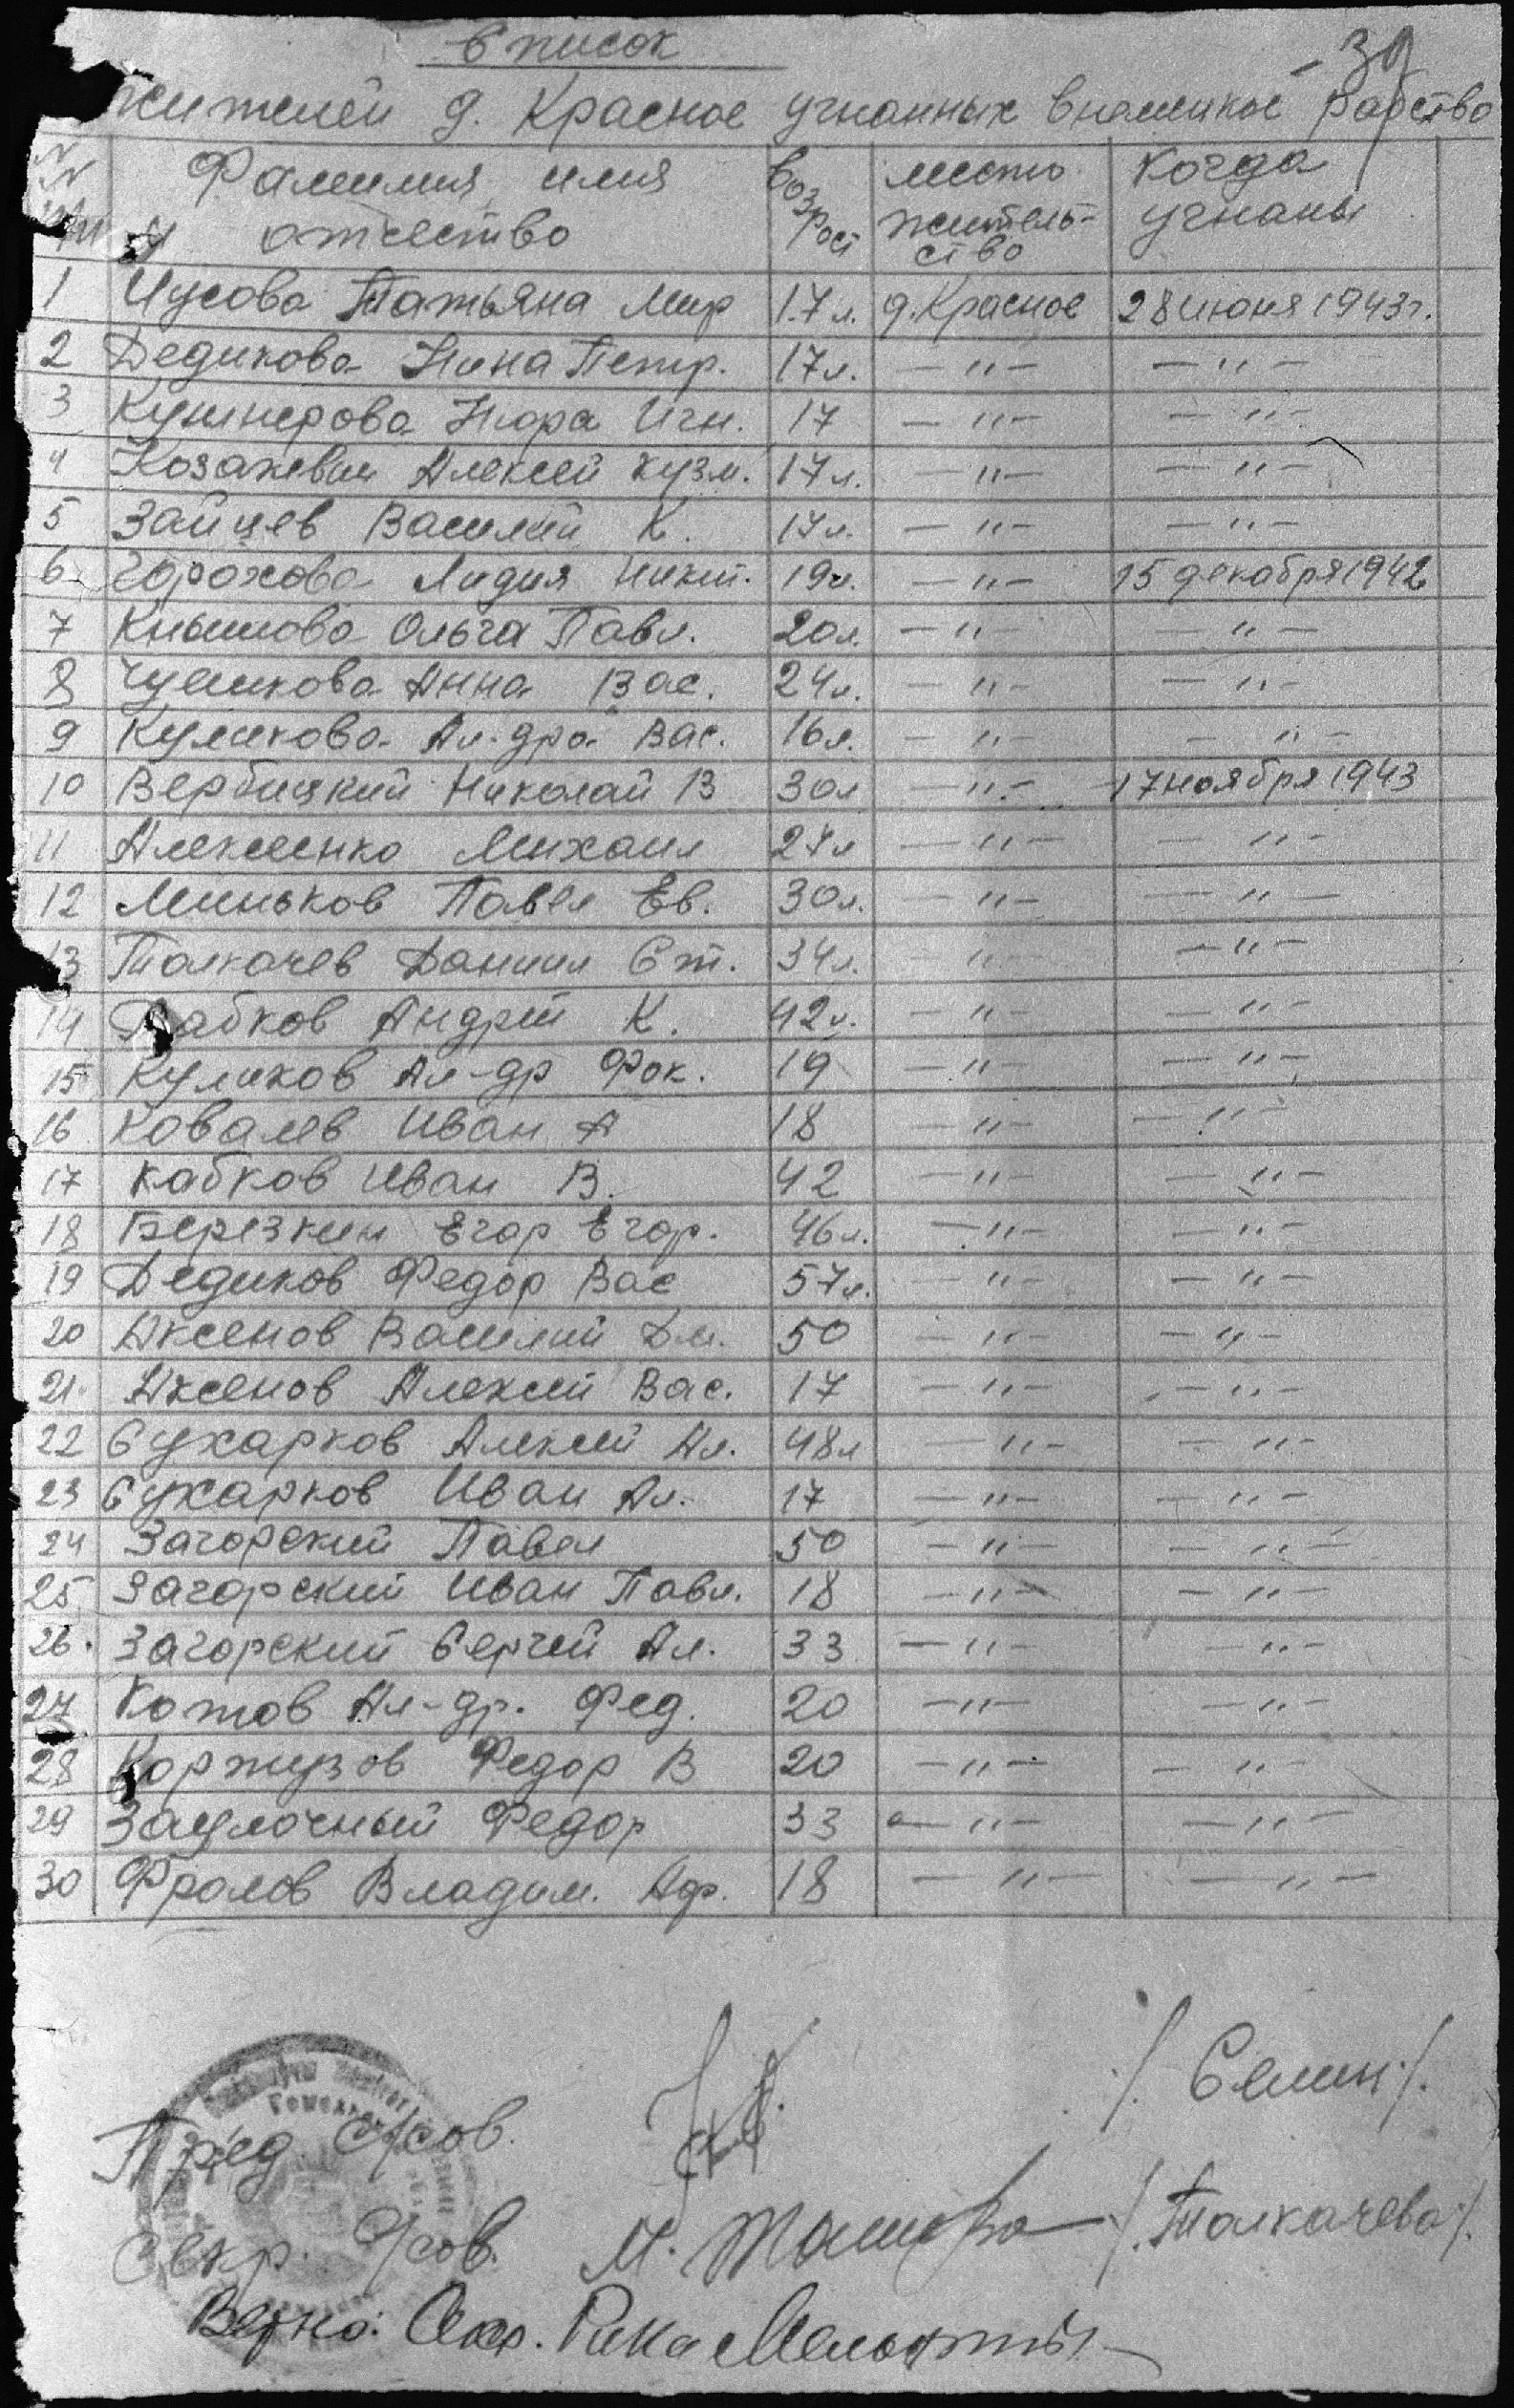 Список
39
жителей д. Красное угнанных в немецкое рабство
NN Фамилия, имя возраст место когда
п/п и отчество жительство угнаны
1 Чусова Татьяна Мир 17 л. д. Красное 28 июня 1943 г.
2 Дедикова Нина Петр. 17 л. — " — — " —
3 Кушнерова Нюра Игн. 17 — " — — " —
4 Козакевич Алексей Кузм. 17 л. — " — — " —
5 Зайцев Василий К. 17 л. — " — — " —
6 Горохова Лидия Никит. 19 л. — " — 15 декабря 1942
7 Кнышова Ольга Павл. 20 л. — " — — " —
8 Чушкова Анна Вас. 24 л. — " — — " —
9 Куликова Ал-дра Вас. 16 л. — " — — " —
10 Вербицкий Николай В 30 л — " — 17 ноября 1943
11 Алексеенко Михаил 27 л — " — — " —
12 Миньков Павел Ев. 30 л. — " — — " —
13 Толкачев Даниил Ст. 34 л. — " — — " —
14 Андрей К. 42 л. — " — — " —
15 Куликов Ал-др Фок. 19 — " — — " —
16 Ковалев Иван А 18 — " — — " —
17 Кабков Иван В. 42 — " — — " —
18 Березкин Егор Егор. 46 л. — " — — " —
19 Дедиков Федор Вас 57 л. — " — — " —
20 Аксенов Василий Дм. 50 — " — — " —
21 Аксенов Алексей Вас. 17 — " — — " —
22 Сухарков Алексей Ал. 48 л — " — — " —
23 Сухарков Иван Ал. 17 — " — — " —
24 Загорский Павел 50 — " — — " —
25 Загорский Иван Павл. 18 — " — — " —
26. Загорский Сергей Ал. 33 — " — — " —
27 Котов Ал-др. Фед. 20 — " — — " —
28 Коржузов Федор В 20 — " — — " —
29 Заулочный Федор 33 — " — — " —
30 Фролов Владим. Аф. 18 — " — — " —
Пред. с/сов. /Семин/.
Секр. с/сов. /Толкачева/.
Верно: Секр. Рика